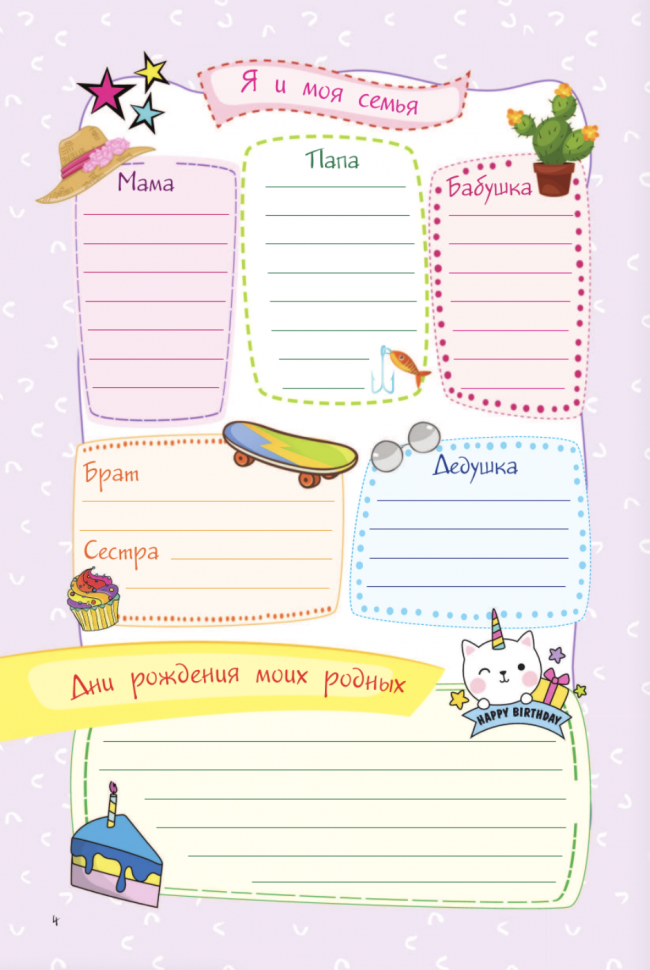 Я и моя семья
Мама
Папа
Бабушка
Брат
Сестра
Дедушка
Дни рождения моих родных
HAPPY BIRTHDAY
4